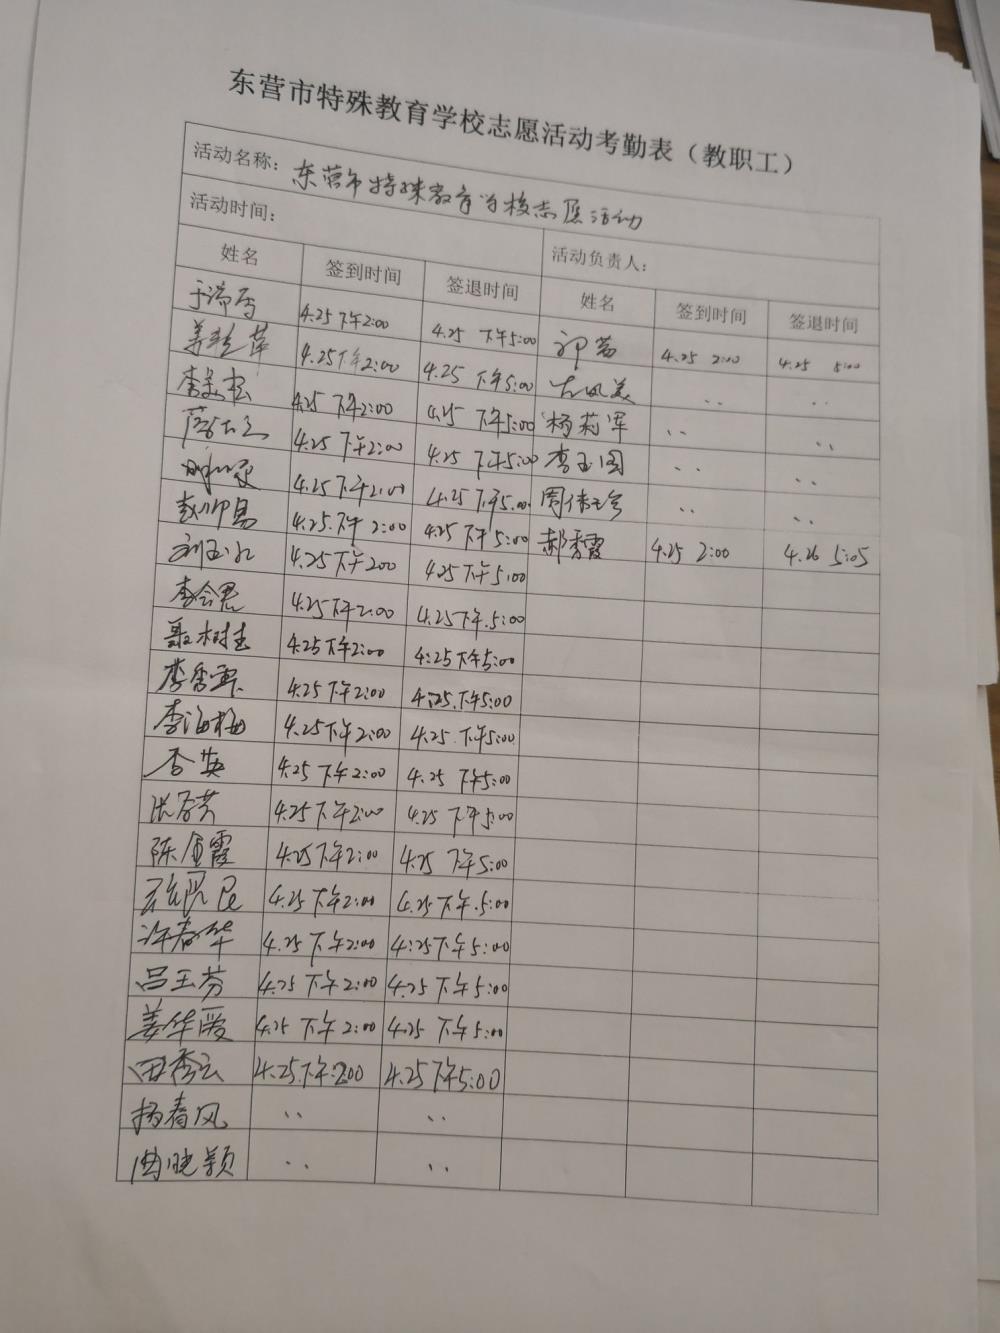 东营市特殊教育学校志愿活动考勤表（教职工）
活动名称： 东营市特殊教育学校志愿活动
活动时间： 活动负责人：
姓名 签到时间 签退时间 姓名 签到时间 签退时间
4.25 下午2:00 4.25 下午5:00 4.25 2:00 4.25 5:00
4.25下午2:00 4.25 下午5:00 ‥ ‥
4.25 下午2:00 4.25 下午5:00 杨莉军 ‥ ‥
4.25 下午2:00 4.25 下午5:00 李玉国 ‥ ‥
4.25 下午2:00 4.25 下午5.00 ‥ ‥
4.25.下午 2:00 4.25 下午5:00 郝秀霞 4.25 2:00 4.26 5:05
4.25下午200 4.25下午5:00
李会君 4.25下午2:00 4.25下午.5:00
聂树生 4.25下午2:00 4:25下午5:00
李秀军 4.25下午2:00 4:25.下午5:00
李海梅 4.25下午2:00 4.25.下午5:00
李英 4.25下午2:00 4.25 下午5:00
4.25下午2:00 4.25 下午5:00
陈金霞 4.25下午2:00 4.25 下午5:00
4.25 下午2:00 4.25下午.5:00
许春华 4.25 下午2:00 4:25下午5:00
吕玉芬 4.25 下午2:00 4.25下午5:00
姜华爱 4.25 下午2:00 4.25 下午5:00
田秀云 4.25下午:200 4.25下午5:00
杨春风 ‥ ‥
曲晓颖 ‥ ‥